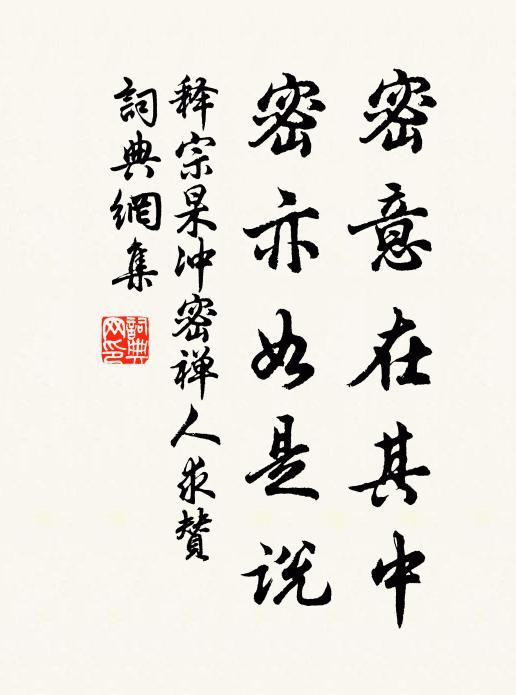 密意在其中
密亦如是说
释宗杲冲密禅人求赞
詞典網集
詞典网印